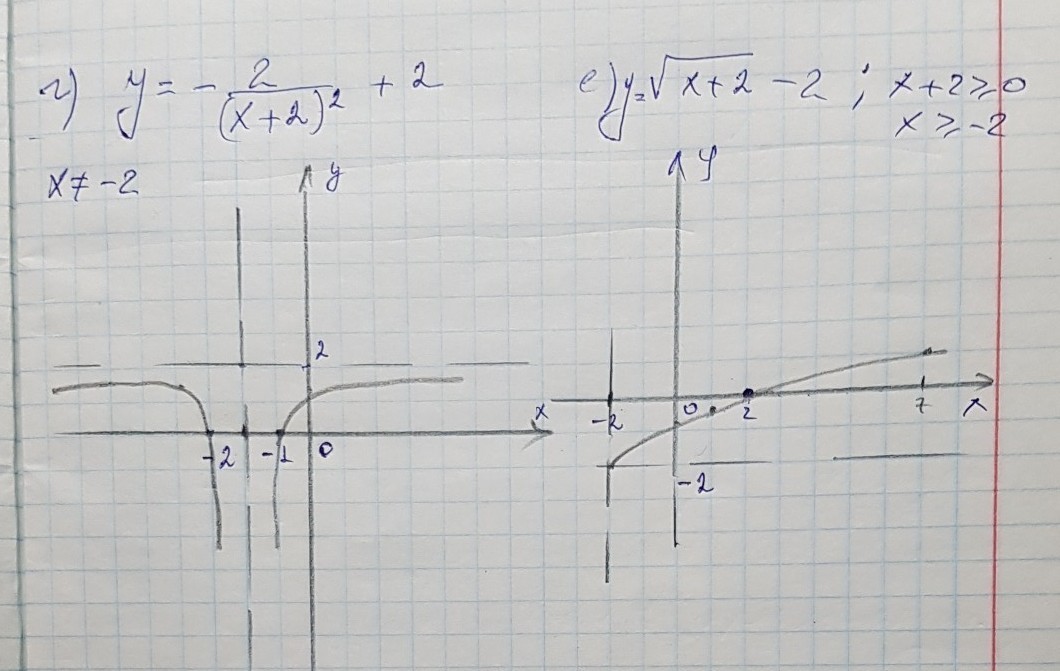 г) y = - 2/(x+2)² + 2
x ≠ -2
y
2
x
-2 -1 0
е) y = √(x+2) - 2 ; x+2 ≥ 0
x ≥ -2
y
-2 0 2 7 x
-2